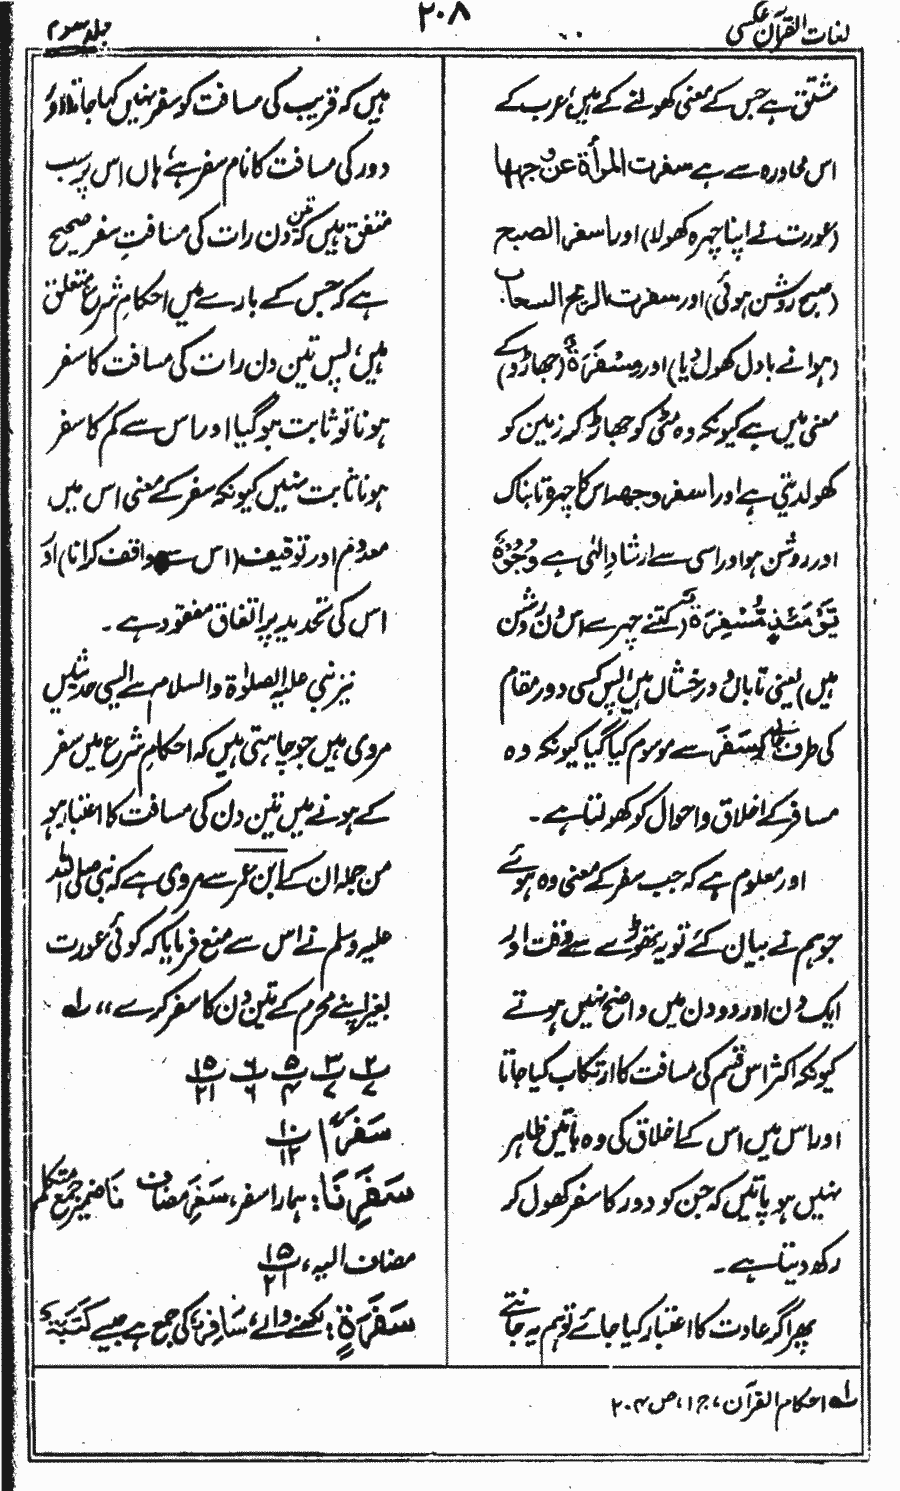 لغات القرآن عکسی
۲۰۸
جلد سوم
مشتق ہے جس کے معنی کھولنے کے ہیں، عرب کے
اس محاورہ سے ہے سفرت المرأة عن وجهها
(عورت نے اپنا چہرہ کھولا) اور اسفر الصبح
(صبح روشن ہوئی) اور سفرت الریح السحاب
(ہوا نے بادل کھول دیا) اور مِسْفَرَة (جھاڑو) کے
معنی میں ہے کیونکہ وہ مٹی کو جھاڑ کر زمین کو
کھول دیتی ہے اور اسفر وجهه اس کا چہرہ تابناک
اور روشن ہو اور اسی سے ارشادِ الٰہی ہے وُجُوْهٌ
يَّوْمَئِذٍ مُّسْفِرَةٌ (کتنے چہرے اس دن روشن
ہیں) یعنی تاباں و درخشاں ہیں، پس کسی دور مقام
کی طرف جانے کو سَفَر سے موسوم کیا گیا کیونکہ وہ
مسافر کے اخلاق و احوال کو کھولتا ہے۔
اور معلوم ہے کہ جب سفر کے معنی وہ ہوئے
جو ہم نے بیان کئے تو یہ تھوڑے سے وقت اور
ایک دن اور دو دن میں واضح نہیں ہوتے
کیونکہ اکثر اس قسم کی مسافت کا ارتکاب کیا جاتا
اور اس میں اس کے اخلاق کی وہ باتیں ظاہر
نہیں ہو پاتیں کہ جن کو دور کا سفر کھول کر
رکھ دیتا ہے۔
پھر اگر عادت کا اعتبار کیا جائے تو ہم یہ جانتے
ہیں کہ قریب کی مسافت کو سفر نہیں کہا جاتا اور
دور کی مسافت کا نام سفر ہے، ہاں اس پر سب
متفق ہیں کہ تین دن رات کی مسافت سفرِ صحیح
ہے کہ جس کے بارے میں احکامِ شرع متعلق
ہیں، پس تین دن رات کی مسافت کا سفر
ہونا تو ثابت ہو گیا اور اس سے کم کا سفر
ہونا ثابت نہیں کیونکہ سفر کے معنی اس میں
معدوم اور توقیف (اس سے واقف کرانا) اور
اس کی تحدید پر اتفاق مفقود ہے۔
نیز نبی علیہ الصلوٰۃ والسلام سے ایسی حدیثیں
مروی ہیں جو چاہتی ہیں کہ احکامِ شرع میں سفر
کے ہونے میں تین دن کی مسافت کا اعتبار ہو
من جملہ ان کے ابن عمر سے مروی ہے کہ نبی صلی اللہ
علیہ وسلم نے اس سے منع فرمایا کہ کوئی عورت
بغیر اپنے محرم کے تین دن کا سفر کرے،، لہ
۲/۷ ۳/۷ ۵/۴ ۶/۶ ۱۵/۲۱
سَفَرًا ۱۰/۱۲
سَفَرِنَا: ہمارا سفر، سَفَرِ مضاف نَا ضمیر جمع متکلم
مضاف الیہ، ۱۵/۲۱
سَفَرَةٍ: لکھنے والے، سَافِرٌ کی جمع ہے جیسے كَتَبَةٌ
لہ احکام القرآن، ج۱، ص ۲۰۴